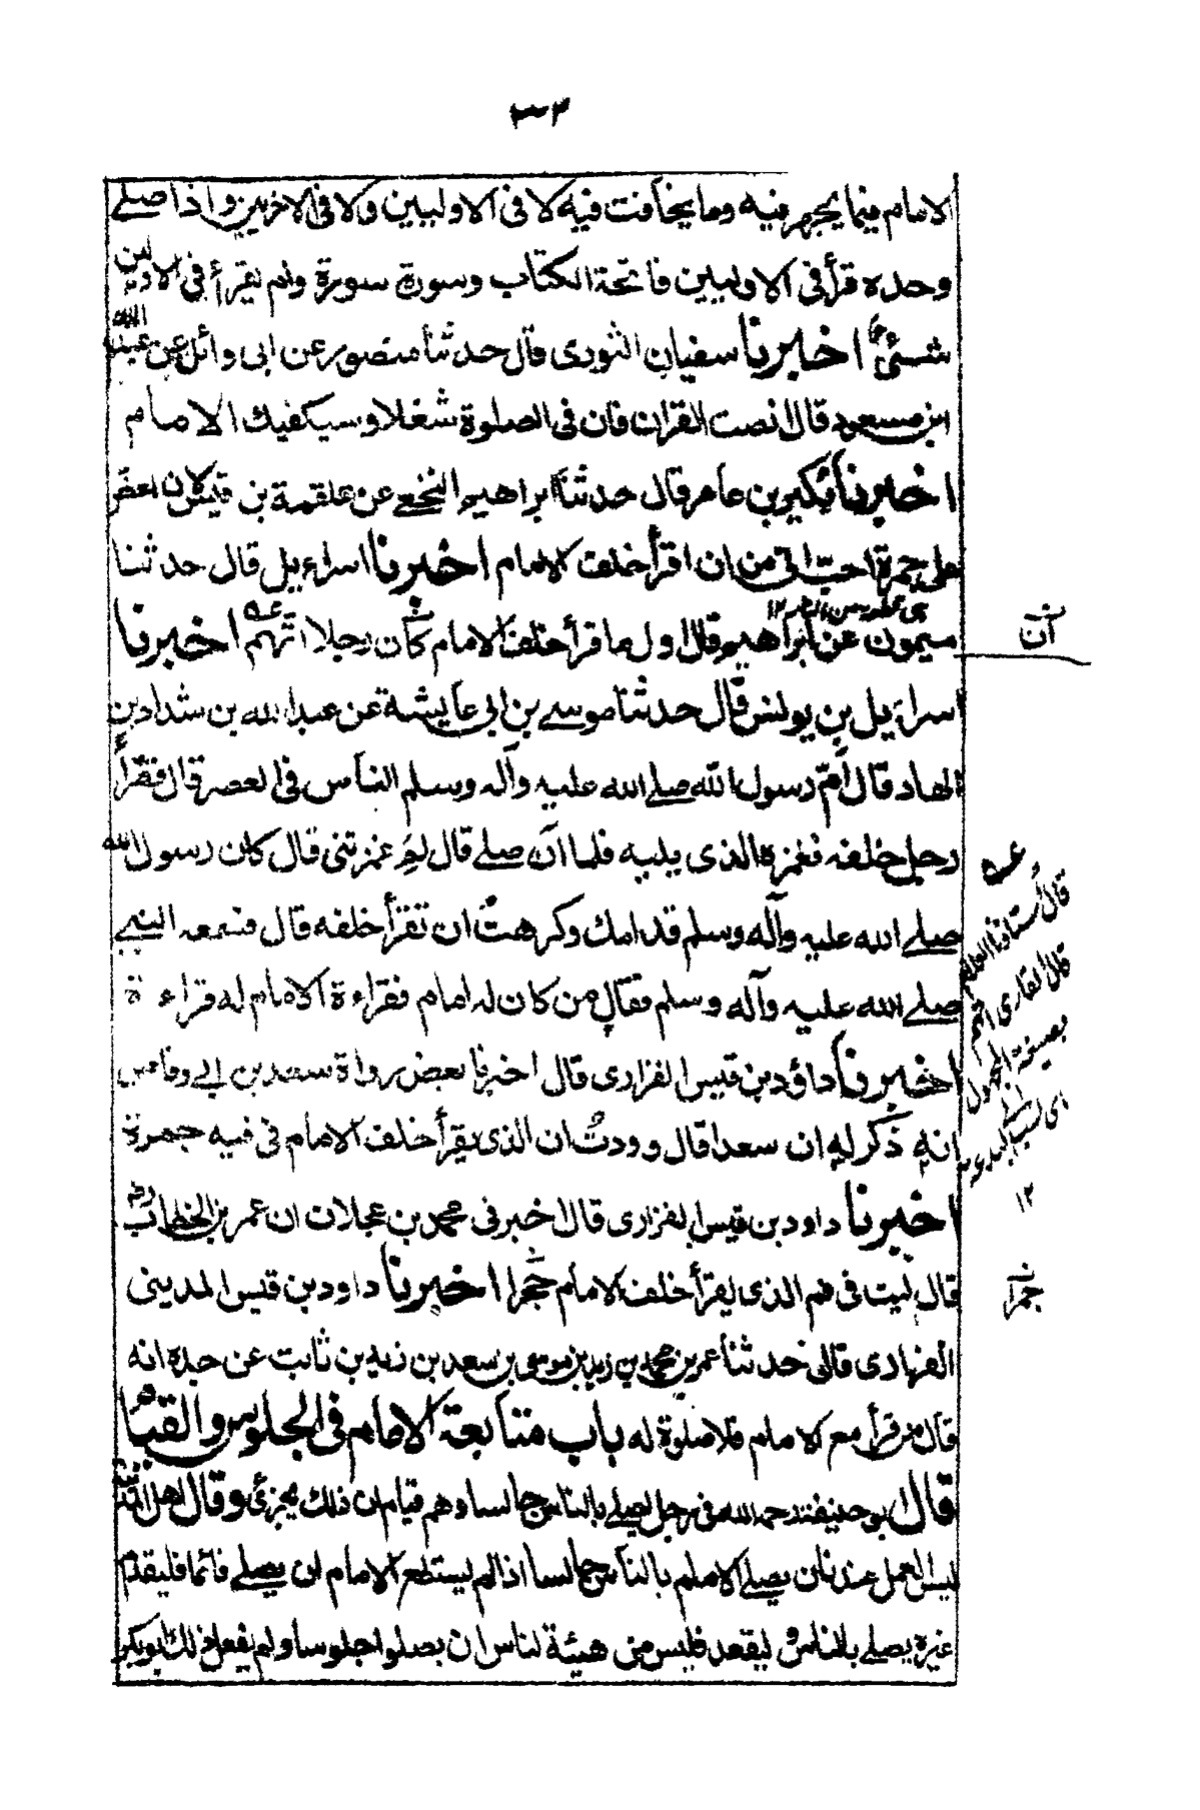 الامام فيما يجهر فيه وما يخافت فيه لا فى الاوليين ولا فى الاخريين واذا صلے
وحده قرأ فى الاوليين فاتحة الكتاب وسورة سورة ولم يقرأ فى الاخريين
شئ اخبرنا سفيان الثورى قال حدثنا منصور عن ابى وائل عن عبد الله
ابن مسعود قال انصت للقران فان فى الصلوة شغلا وسيكفيك الامام
اخبرنا بكير بن عامر قال حدثنا ابراهيم النخعے عن علقمة بن قيس لان اعض
على جمرة احب الى من ان اقرأ خلف الامام اخبرنا اسرائيل قال حدثنا
ميمون عن ابراهيم قال اول ما قرأ خلف الامام كان رجلا اتهم اخبرنا
ان
اسرائيل بن يونس قال حدثنا موسے بن ابى عايشة عن عبد الله بن شداد بن
الهاد قال أم رسول الله صلے الله عليه وآله وسلم الناس فى العصر قال فقرأ
رجل خلفه فغمزه الذى يليه فلما ان صلے قال لم غمزتنى قال كان رسول الله
صلے الله عليه وآله وسلم قدامك وكرهت ان تقرأ خلفه قال فسمعه النبے
صلے الله عليه وآله وسلم فقال من كان له امام فقراءة الامام له قراءة
اخبرنا داؤد بن قيس الفزارى قال اخبرنا بعض رواة سعد بن ابى وقاص
انه ذكر له ان سعدا قال وودت ان الذى يقرأ خلف الامام فى فيه جمرة
اخبرنا داود بن قيس الفزارى قال اخبرنى محمد بن عجلان ان عمر بن الخطاب
قال ليت فى فم الذى يقرأ خلف الامام حجرا اخبرنا داود بن قيس المدينى
الفزارى قال حدثنا عمر بن محمد بن زيد بن موسى بن سعد بن زيد بن ثابت عن جده انه
قال من قرأ مع الامام فلا صلوة له باب متابعة الامام فى الجلوس والقيام
قال ابو حنيفة رحمه الله فى رجل يصلے بالناس جالسا وهم قيام ان ذلك يجزئ وقال اهل المدينة
ليس العمل عندنا ان يصلے الامام بالناس جالسا اذا لم يستطع الامام ان يصلے قائما فليقدم
غيره يصلے بالناس و ليقعد فليس من هيئة الناس ان يصلوا جلوسا ولم يفعل ذلك ابو بكر
قال استاذنا العلام
قال القارى اتهم
بصيغة المجهول
اى
١٢